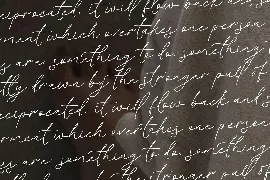 reciprocated. it will flow back and
ment which overtakes one person
s are something to do something
tly drawn by the stronger pull of
eciprocated. it will flow back and s
rment which overtakes one person
es are something to do something
by the stronger pull of